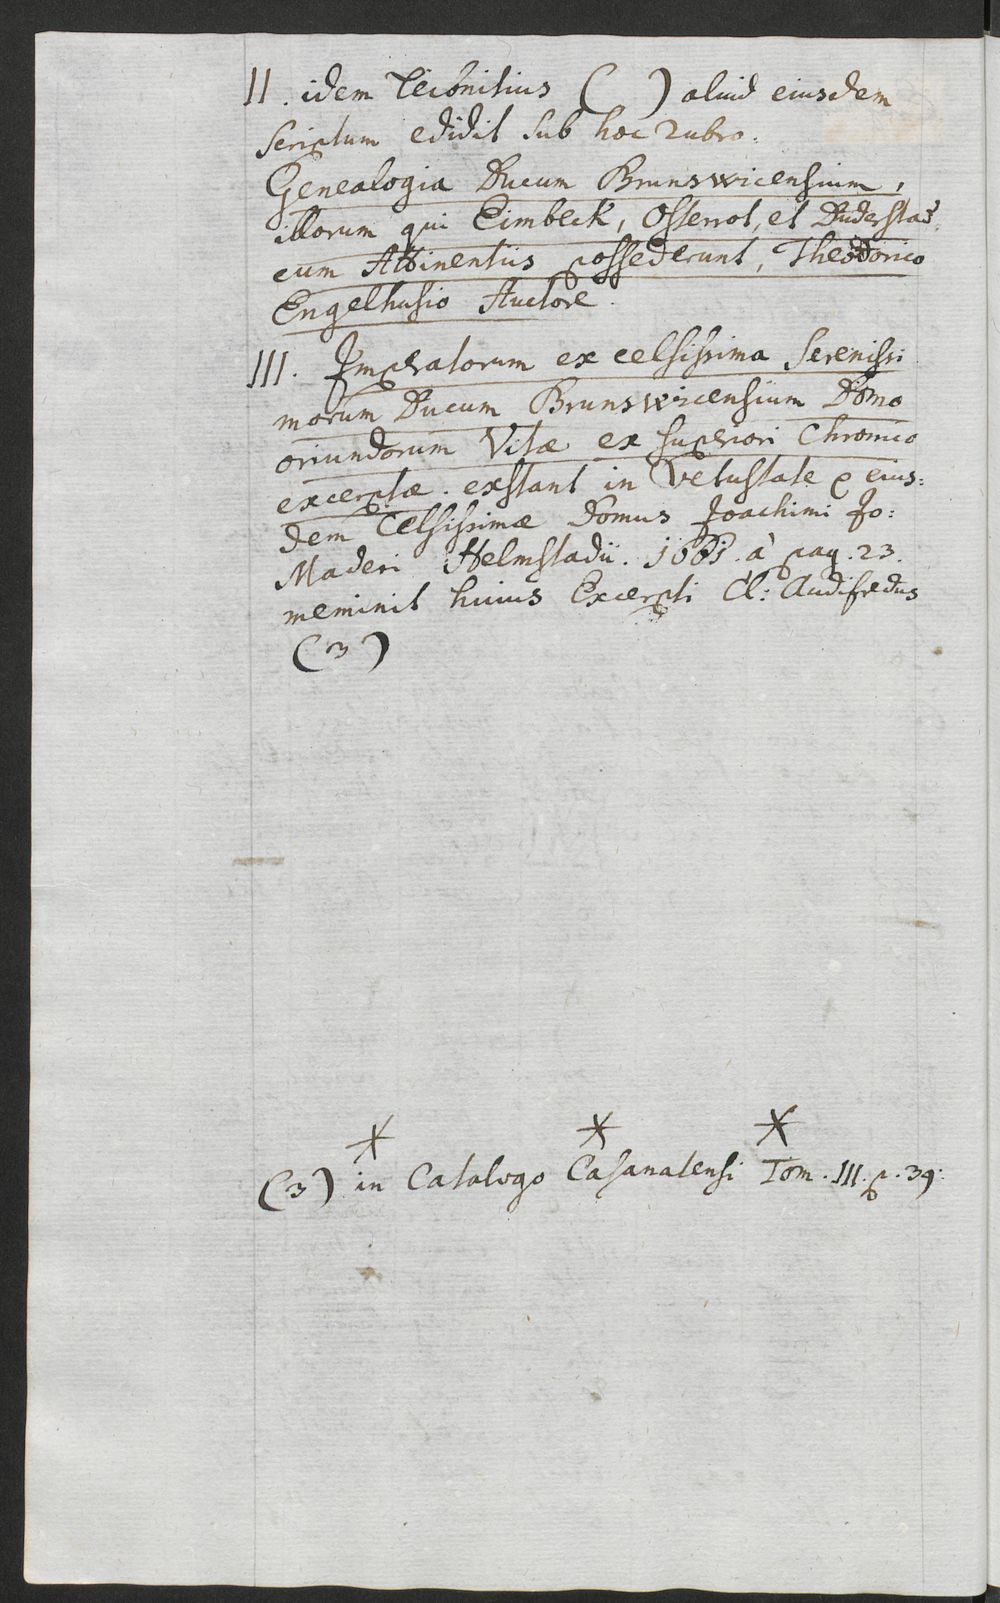 II. idem Leibnitius (   ) aliud eiusdem
scriptum edidit sub hoc rubro.
Genealogia Ducum Brunswicensium,
illorum qui Eimbeck, Osterrot, et Duderstad
cum Attinentiis possederunt, Theodorico
Engelhusio Auctore.
III. Imperatorum ex celsissima Serenissi
morum Ducum Brunswicensium Domo
oriundorum Vitae ex superiori Chronico
excerptae. exstant in Vetustate eius:
dem Celsissimae Domus Joachimi Jo:
Maderi Helmstadii. 1661. à pag. 23.
meminit huius Excerpti Cl: Audifredus
(3)
(3) in Catalogo Casanatensi Tom. III. p. 39: